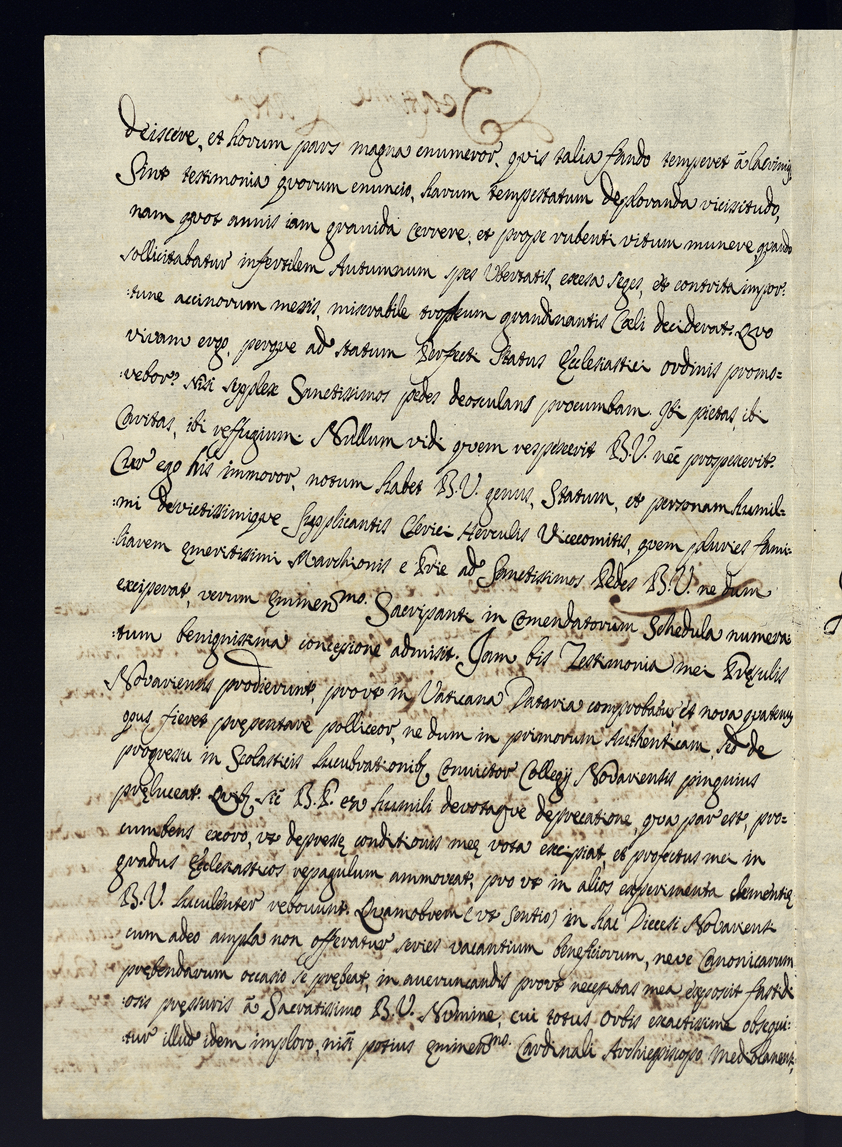 deiscere, et horum pars magna enumeror, quis talia fando temperet à lacrimis
Sint testimonia quorum enuncio, harum tempestatum deploranda vicissitudo,
nam quot annis iam gravida Cerere, et prope rubenti vitum munere, quando
sollicitabatur infertilem Autumnum spes Ubertatis, excesa seges, et contrita impor-
:tune accinorum messis, miserabile tropheum grandinantis Cœli deciderat. Quo
vivam ergo, pergve ad statum Perfecti Status Ecclesiastici ordinis promo=
:vebor? Nisi supplex Sanctissimos pedes deosculans procumbam. Ibi pietas, ibi
Caritas, ibi reffugium. Nullum vidi quem respexerit B.V. nec prospexerit.
Cur ego his immoror, notum habet B.V. genus, Statum, et personam humil=
:mi devictissimique Supplicantis Clerici Herculis Vicecomitis, quem pluries fami:
:liarem emeritissimi Marchionis e Prie ad Sanctissimos Pedes B.V. ne dum
exciperat, verum Eminenmo. Sacripante in Comendatorum Schedula numera:
:tum benignissima concessione admisit. Jam bis Testimonia mei Pręsulis
Novariensis prodierunt, prout in Vaticana Dataria comprobatur et nova quatenus
opus fieret pręsentare polliceor, ne dum in primorum Authenticam, sed de
progressu in Scolasticis lucubrationibꝫ Convictor Collegij Novariensis pinguius
pręluceat. Quibꝫ sic B.P. ea humili devotaque deprecatione, qua par est, pro=
cumbens exoro, ut depressę conditionis meę vota excipiat, et profectus mei in
gradus Ecclesiasticos repagulum ammoveat, pro ut in alios experimenta clementię
B.V. luculenter referunt. Quamobrem (ut sentio) in hac Diecesi Novariensi
cum adeo ampla non offeratur series vacantium beneficiorum, neve Canonicarum
prębendarum occasio se prębeat, in averuncandis prout necessitas mea exposcit fastidi
:osis pressuris à Sacratissimo B.V. Numine, cui totus Orbis exactissime obsequi:
:tur illud idem imploro, nisi potius Eminenmo. Cardinali Archiepiscopo Mediolanensi,